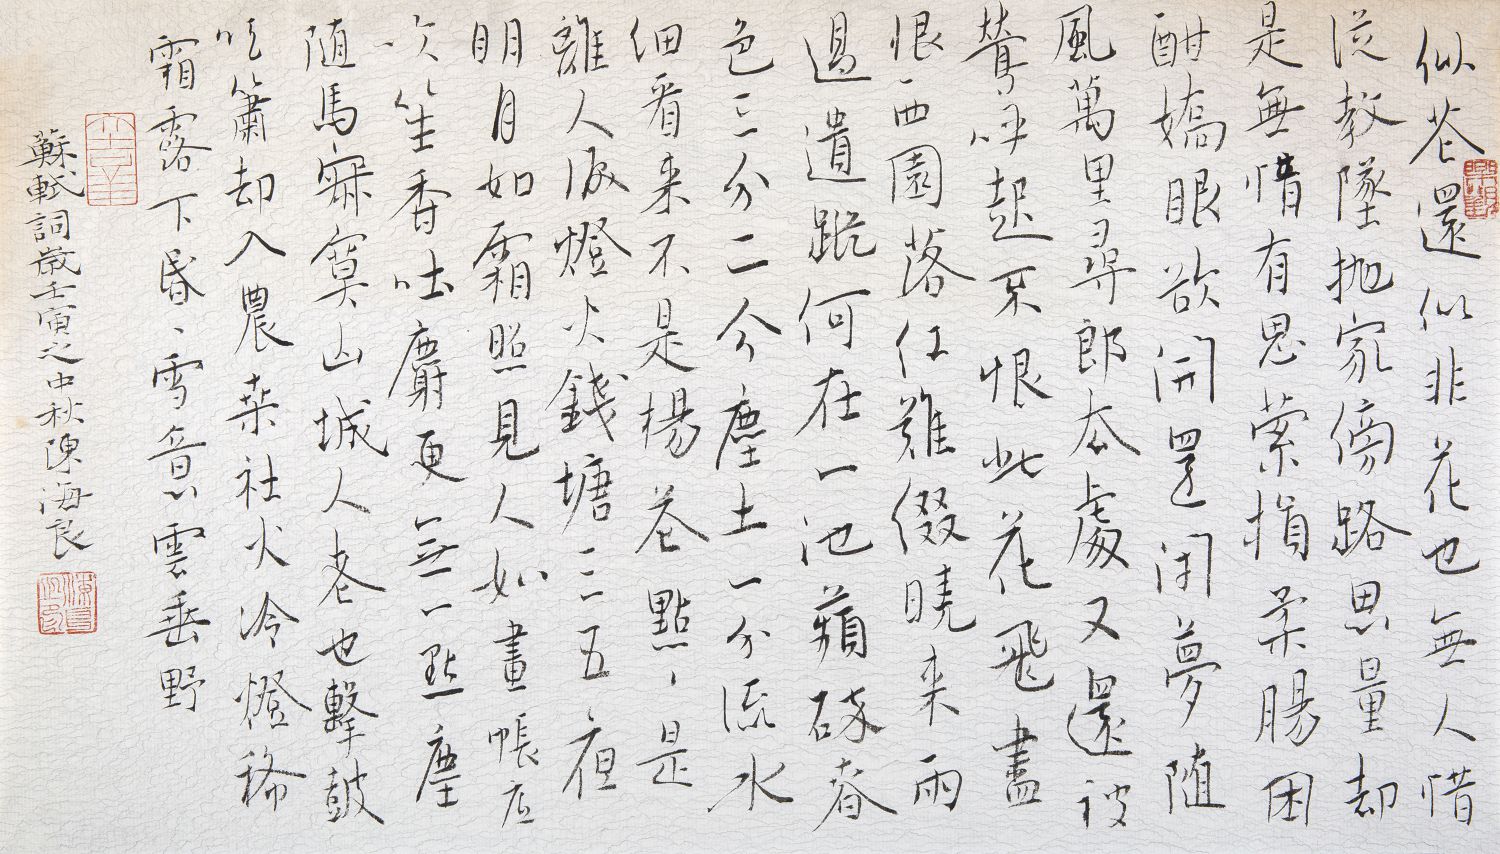 似花還似非花也無人惜
從教墜抛家傍路思量却
是無情有思縈損柔腸困
酣嬌眼欲開還閉夢随
風萬里尋郎去處又還被
鶯呼起不恨此花飛盡
恨西園落红難綴曉来雨
過遺踪何在一池蘋碎春
色三分二分塵土一分流水
細看来不是楊花點、是
離人淚燈火錢塘三五夜
明月如霜照見人如畫帳底
吹笙香吐麝更無一點塵
随馬寂寞山城人老也擊鼓
吹簫却入農桑社火冷燈稀
霜露下昏、雪意雲垂野
蘇軾詞歲壬寅之中秋陳海良